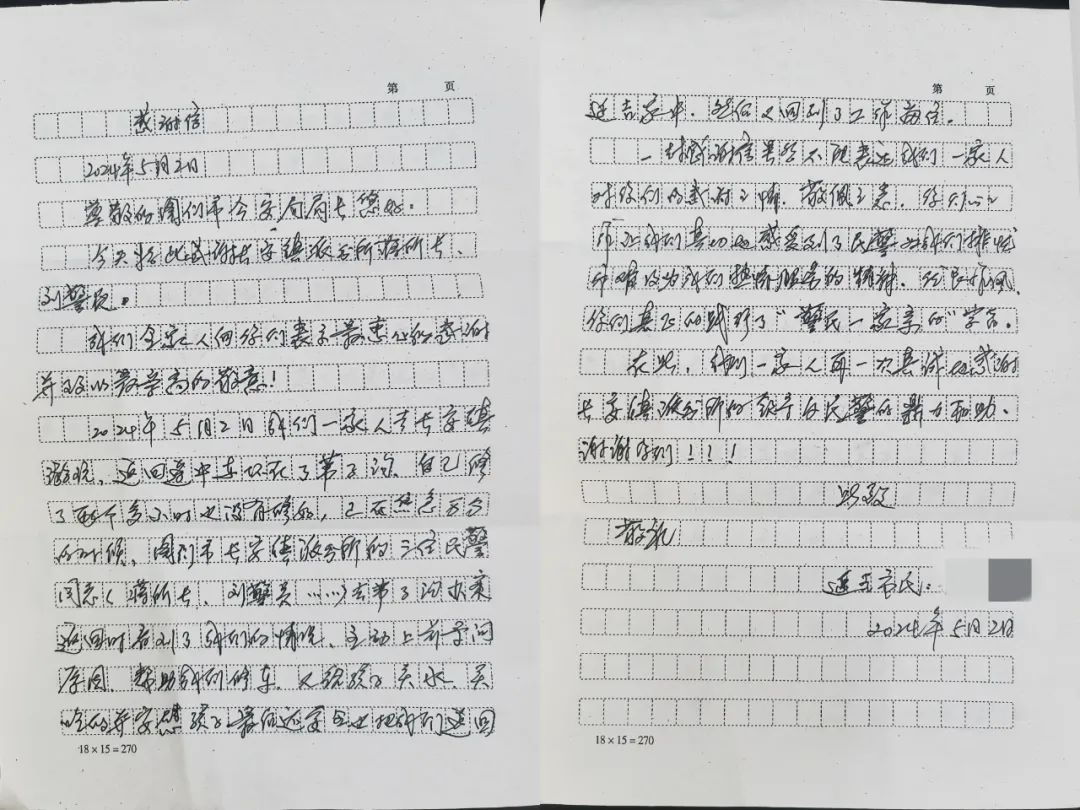 第 页
感谢信
2024年5月2日
尊敬的图们市公安局局长您好.
今天将此感谢长安镇派出所蒋所长、
刘警民。
我们全家人向你们表示最衷心的感谢
并致以最崇高的敬意！
2024年5月2日我们一家人去长安镇
游玩,返回途中车坏在了苇子沟.自己修
了两个多小时也没有修好,正在焦急万分
的时候、图们市长安镇派出所的三位民警
同志(蒋所长、刘警员……)去苇子沟办案
返回时看到了我们的情况、主动上前寻问
原因、帮助我们修车.又给孩子买水、买
吃的并安慰孩子最后还安全地把我们送回
18×15=270
第 页
延吉家中.然后又回到了工作岗位.
一封感谢信虽然不能表达我们一家人
对你们的感谢之情.敬佩之意.你们的
我们真切地感受到了民警为我们排忧
解难及为我们热情服务的精神.
你们真正的践行了“警民一家亲的”字句.
在此,我们一家人再一次真诚地感谢
长安镇派出所的领导及民警的鼎力相助.
谢谢你们！！！
此致
敬礼
延吉市民:
2024年5月2日
18×15=270